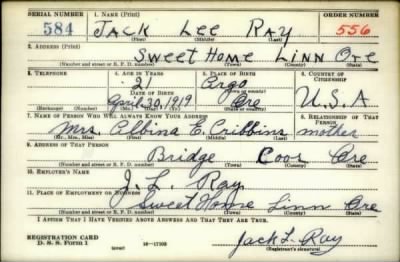 SERIAL NUMBER 1. NAME (Print) ORDER NUMBER
584 JACK LEE RAY 556
(First) (Middle) (Last)
2. ADDRESS (Print)
Sweet Home Linn Ore
(Number and street or R. F. D. number) (Town) (County) (State)
3. TELEPHONE 4. AGE IN YEARS 5. PLACE OF BIRTH 6. COUNTRY OF CITIZENSHIP
21 Argo
DATE OF BIRTH (Town or county)
April 30, 1919 Ore U.S.A
(Exchange) (Number) (Mo.) (Day) (Yr.) (State or country)
7. NAME OF PERSON WHO WILL ALWAYS KNOW YOUR ADDRESS 8. RELATIONSHIP OF THAT PERSON
Mrs. Albina E. Cribbins mother
(Mr., Mrs., Miss) (First) (Middle) (Last)
9. ADDRESS OF THAT PERSON
Bridge Coos Ore
(Number and street or R. F. D. number) (Town) (County) (State)
10. EMPLOYER'S NAME
J. L. Ray
11. PLACE OF EMPLOYMENT OR BUSINESS
Sweet Home Linn Ore
(Number and street or R. F. D. number) (Town) (County) (State)
I AFFIRM THAT I HAVE VERIFIED ABOVE ANSWERS AND THAT THEY ARE TRUE.
REGISTRATION CARD
D. S. S. Form 1 (over) 16-17105 Jack L. Ray
(Registrant's signature)